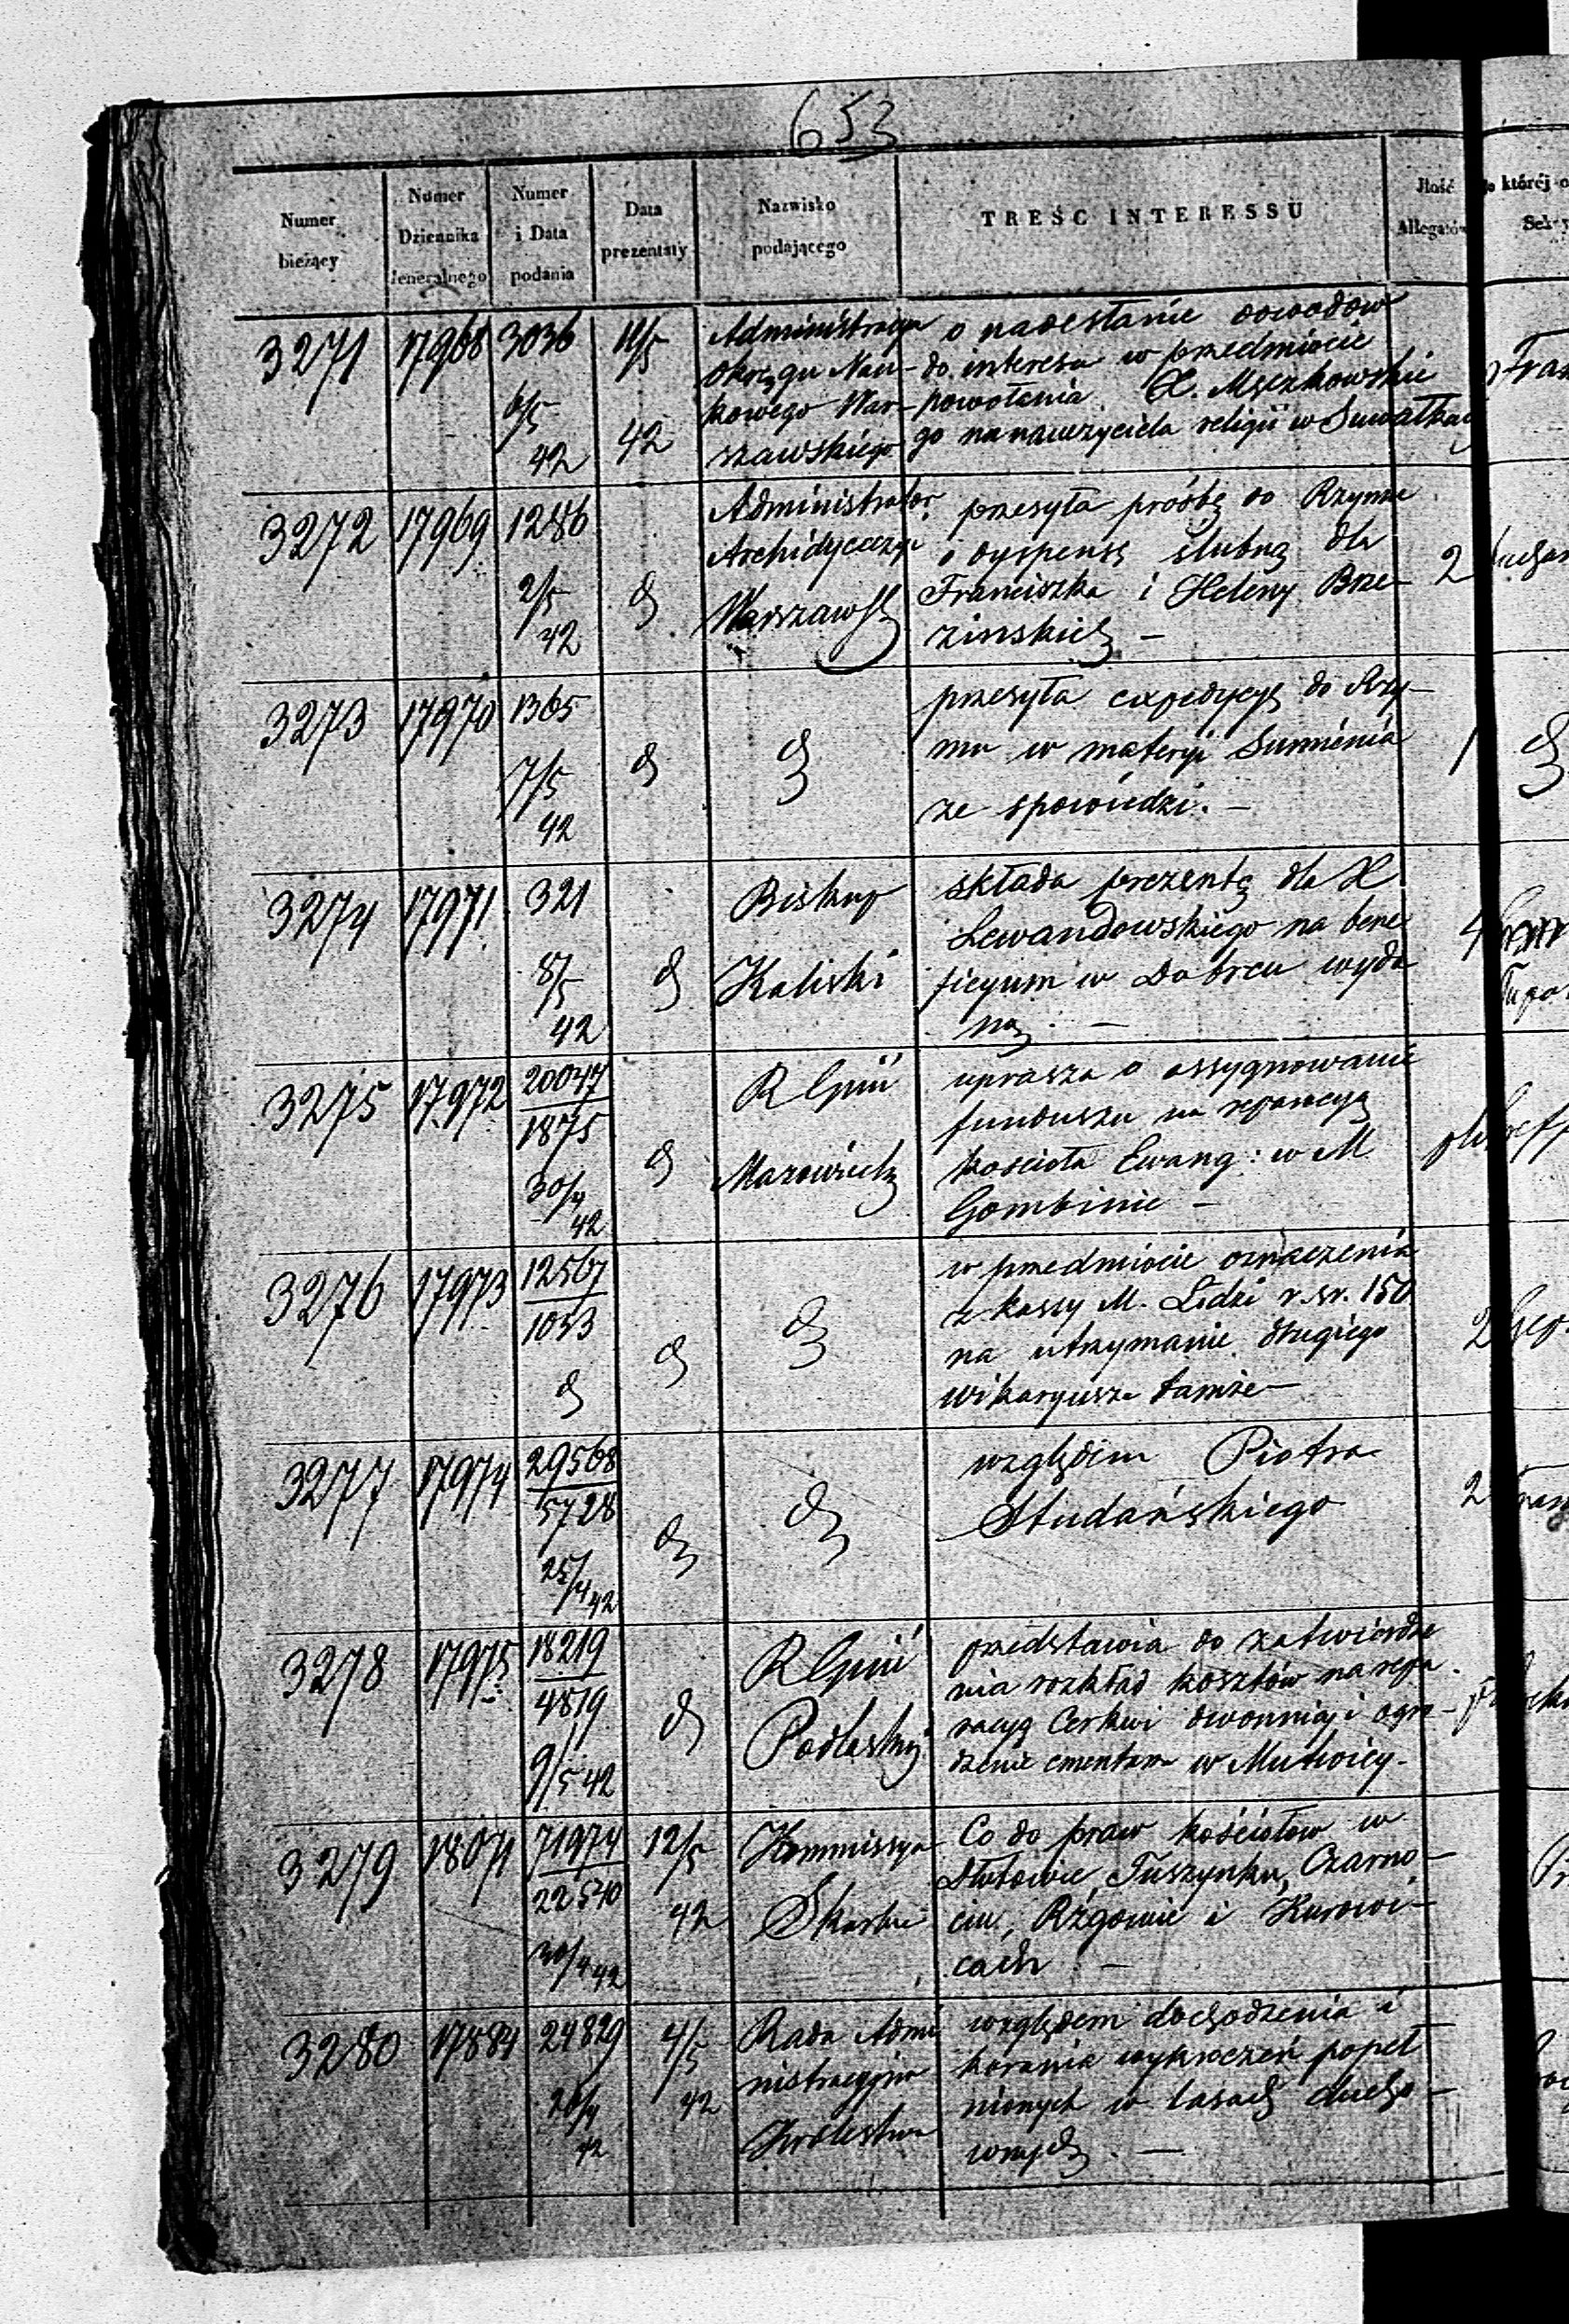 653
Numer bieżący
Numer Dziennika Jeneralnego
Numer i Data podania
Data prezentaty
Nazwisko podającego
TREŚC INTERESSU
Ilość Allegatów
której
3271 17968 3036 6/5 42 11/5 42
Administracya
Okręgu Nau-
kowego War-
szawskiego
o nadesłanie dowodów
do interesu w przedmiocie
powołania X. Męczkowskie
go na nauczyciela religii w Suwałkach
3272 17969 1286 2/5 42 d
Administrator
Archidyecezyi
Warszawsk
przesyła prośbę do Rzymu
o dyspensę ślubną dla
Franciszka i Heleny Brze-
zinskich —
2
3273 17970 1365 7/5 42 d
d
przesyła expedycyę do Rzy-
mu w materyi Sumienia
ze spowiedzi. —
1
3274 17971 321 8/5 42 d
Biskup
Kaliski
składa prezentę dla X
Lewandowskiego na bene
ficyum w Dobrcu wyda
ną. —
4
3275 17972 20047
1875
30/4 42 d
R Gnii
Mazowieck
uprasza o assygnowanie
funduszu na reparacyą
kościoła Ewang: w M
Gombinie —
3276 17973 12567
1053
d d
d
w przedmiocie oznaczenia
z kassy M. Łodzi r. sr. 150
na utrzymanie drugiego
wikaryusza tamże —
2
3277 17974 29568
5728
25/4 42 d
d
względem Piotra
Studańskiego
2
3278 17975 18219
4819
9/5 42 d
R Gnii
Podlaskij
przedstawia do zatwierdze
nia rozkład kosztów na repa
racyą Cerkwi dzwonnicy i ogro-
dzenie cmentarza w
3279 18071 71974
22540
30/4 42 12/5 42
Kommissya
Skarbu
Co do praw kościołow w
Dłutowie, Tuszynku, Czarno-
cin, Rżgowie i Kurowi-
cach —
3280 17884 24829 4/5 42
Rada Admi
nistracyjna
Królestwa
względem dochodzenia i
karania wykroczeń popeł
nionych w lasach ducho-
wnych. —